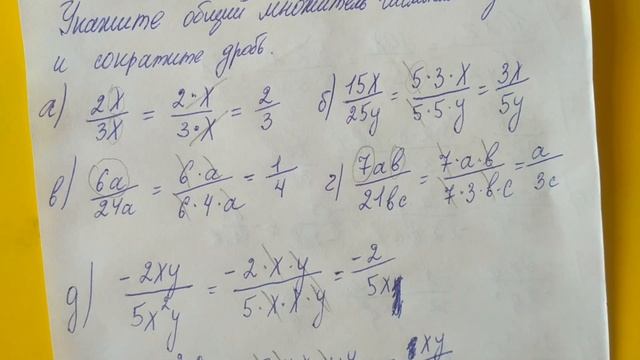 Укажите общий множитель
и сократите дробь.
а) 2x/3x = 2·x/3·x = 2/3 б) 15x/25y = 5·3·x/5·5·y = 3x/5y
в) 6a/24a = 6·a/6·4·a = 1/4 г) 7ab/21bc = 7·a·b/7·3·b·c = a/3c
д) -2xy/5x²y = -2·x·y/5·x·x·y = -2/5x
xy